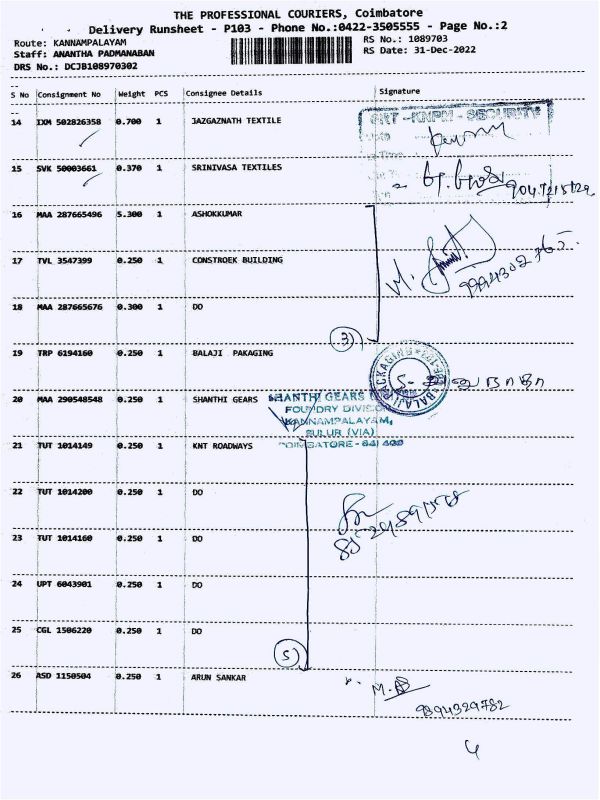 THE PROFESSIONAL COURIERS, Coimbatore
Delivery Runsheet - P103 - Phone No.:0422-3505555 - Page No.:2
Route: KANNAMPALAYAM RS No.: 1089703
Staff: ANANTHA PADMANABAN RS Date: 31-Dec-2022
DRS No.: DCJB108970302
S No Consignment No Weight PCS Consignee Details Signature
14 IXM 502826358 0.700 1 JAZGAZNATH TEXTILE
- KNPM - SECURITY
15 SVK 50003661 0.370 1 SRINIVASA TEXTILES
16 MAA 287665496 5.300 1 ASHOKKUMAR
17 TVL 3547399 0.250 1 CONSTROEK BUILDING
18 MAA 287665676 0.300 1 DO
3
19 TRP 6194160 0.250 1 BALAJI PAKAGING
20 MAA 290548548 0.250 1 SHANTHI GEARS
SHANTHI GEARS
FOUNDRY DIVISION
KANNAMPALAYAM,
SULUR (VIA)
COIMBATORE - 641 400
21 TUT 1014149 0.250 1 KNT ROADWAYS
22 TUT 1014200 0.250 1 DO
23 TUT 1014160 0.250 1 DO
24 UPT 6043901 0.250 1 DO
25 CGL 1506220 0.250 1 DO
5
26 ASD 1150504 0.250 1 ARUN SANKAR
9894329782